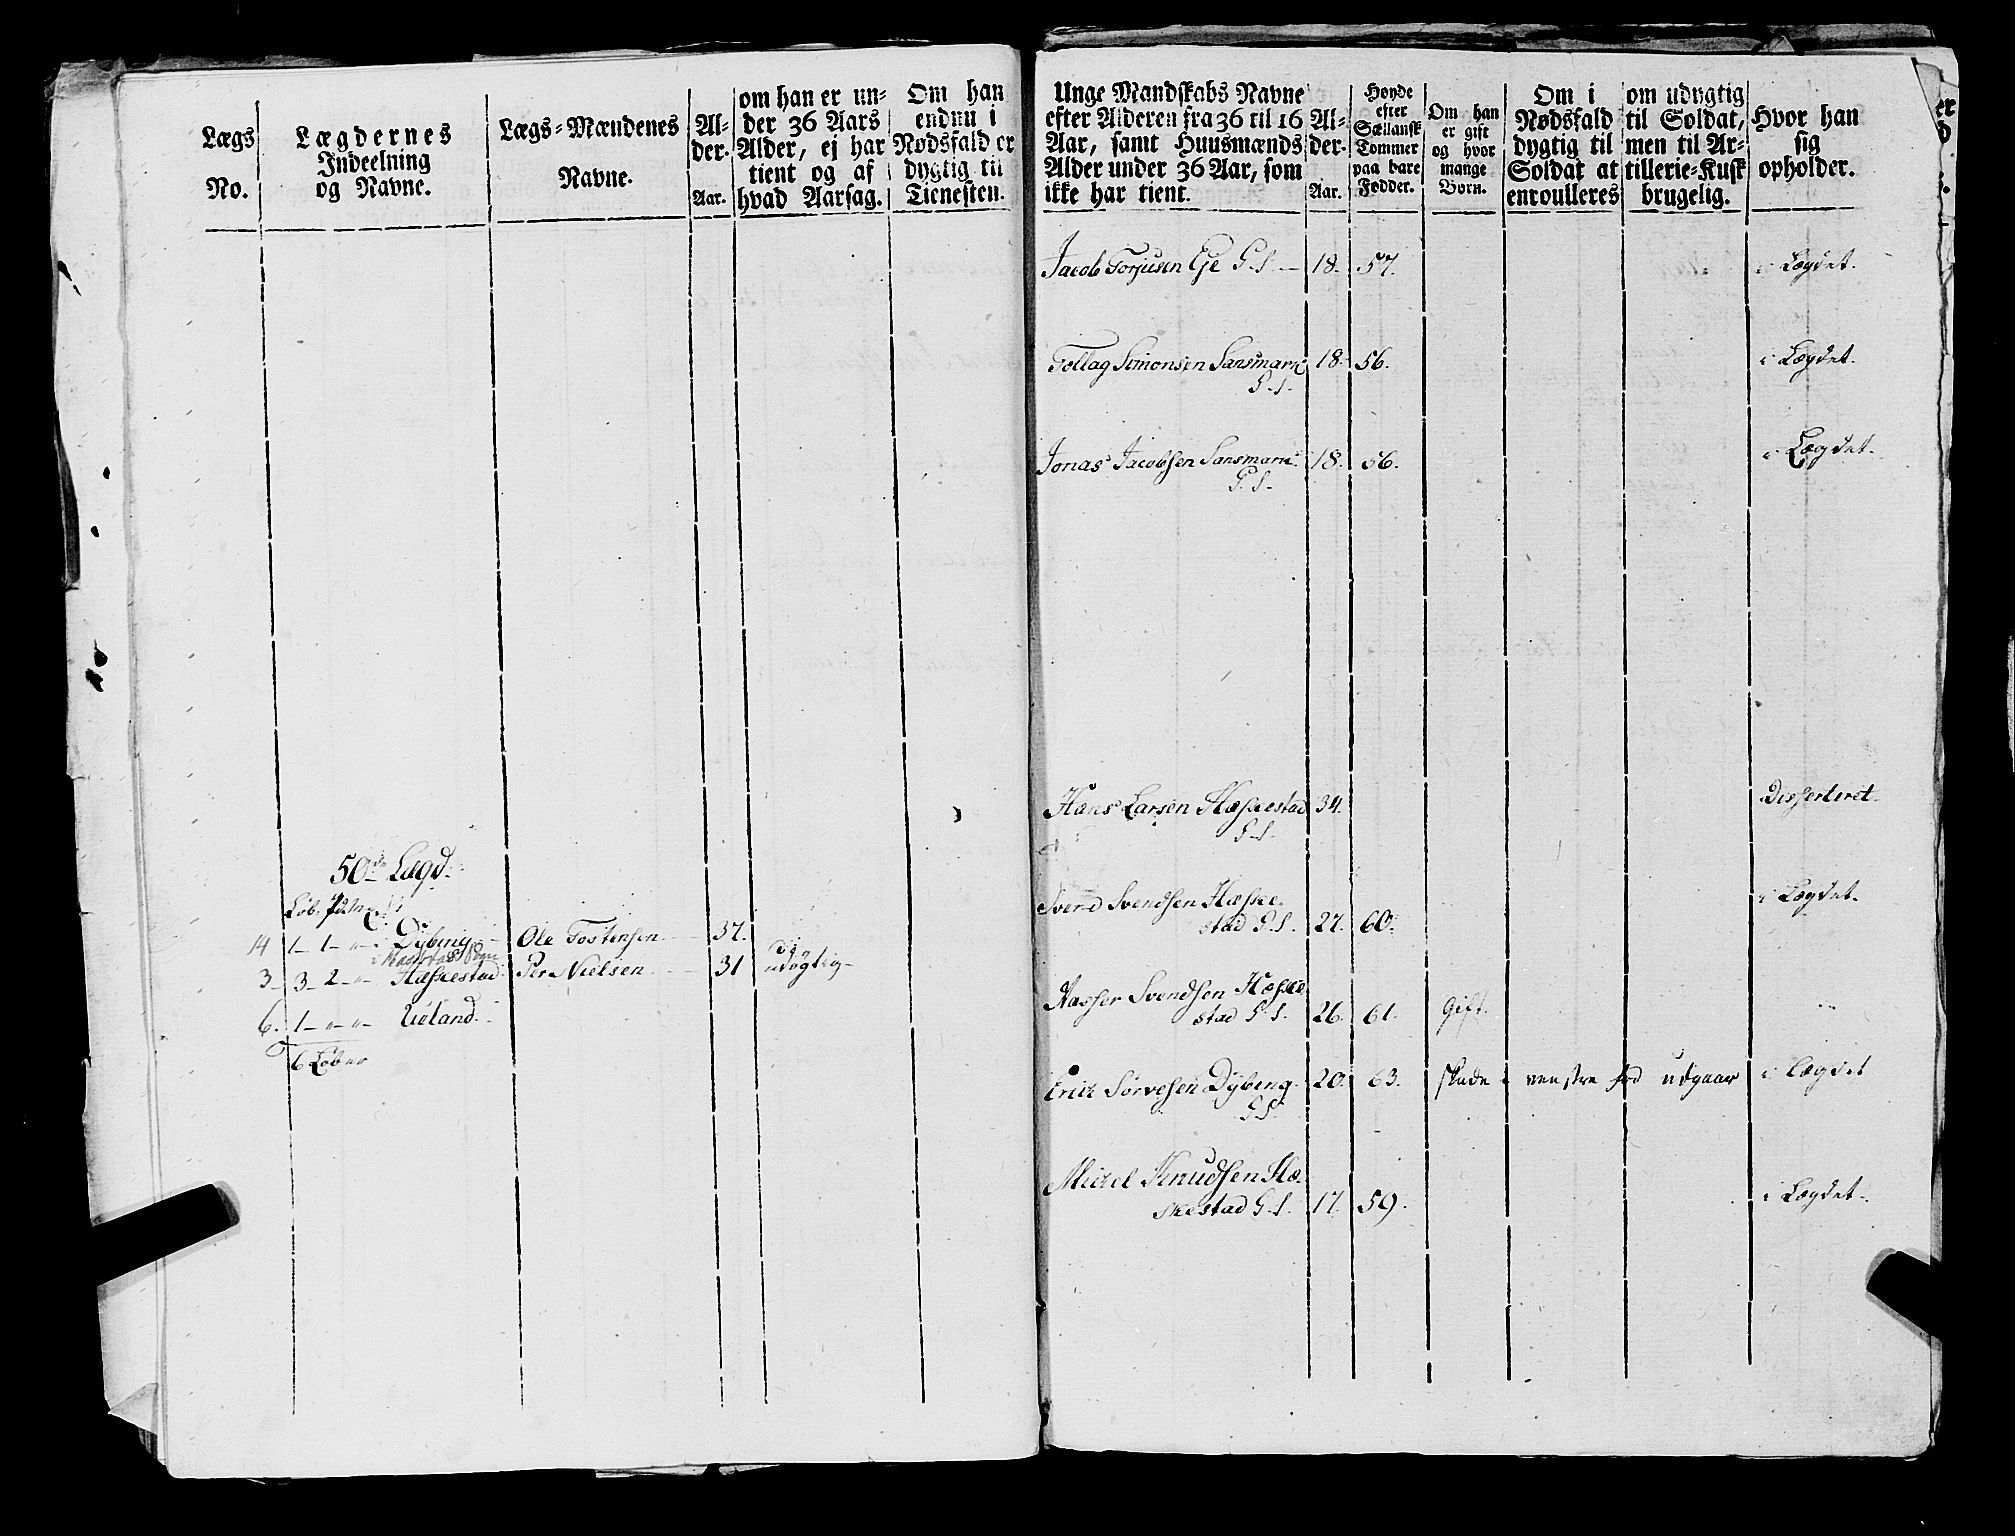 Lægs No.
Lægdernes Indeelning og Navne.
Lægs-Mændenes Navne.
Al-der. Aar.
om han er un-
der 36 Aars
Alder, ej har
tient og af
hvad Aarsag.
Om han
endnu i
Nødsfald er
dygtig til
Tienesten.
50de Lægd.
Løb.
14 1- 1- „- Dybing Ole Tostensen 37.
3- 3- 2- „- Hæskestad Per Nielsen 31 udygtig-
6. 1- „- „- Ueland.
6 Løber
Unge Mandskabs Navne
efter Alderen fra 36 til 16
Aar, samt Huusmænds
Alder under 36 Aar, som
ikke har tient.
Al-
der.
Aar.
Høyde
efter
Sællansk
Tommer
paa bare
Fødder.
Om han
er gift
og hvor
mange
Børn.
Om i
Nødsfald
dygtig til
Soldat at
enroulleres
om udygtig
til Soldat,
men til Ar-
tillerie-Kusk
brugelig.
Hvor han
sig
opholder.
Jacob Torjusen Eje G. S. 18. 57. i Lægdet.
Tollag Simonsen Sansmark 18. 56. i Lægdet.
G. S.
Jonas Jacobsen Sansmark 18. 56. i Lægdet.
G. S.
Hans Larsen Hæskestad 34. Disserteret.
G. S.
Svend Svendsen Hæske-
stad G. S. 27. 60. i Lægdet.
Aasser Svendsen Hæske
stad G. S. 26. 61. Gift. „
Erich Sørvesen Dybing 20. 63. skade i venstre fod udgaar i Lægdet
G. S.
Mickel Knudsen Hæ-
skestad G. S. 17. 59. i Lægdet.